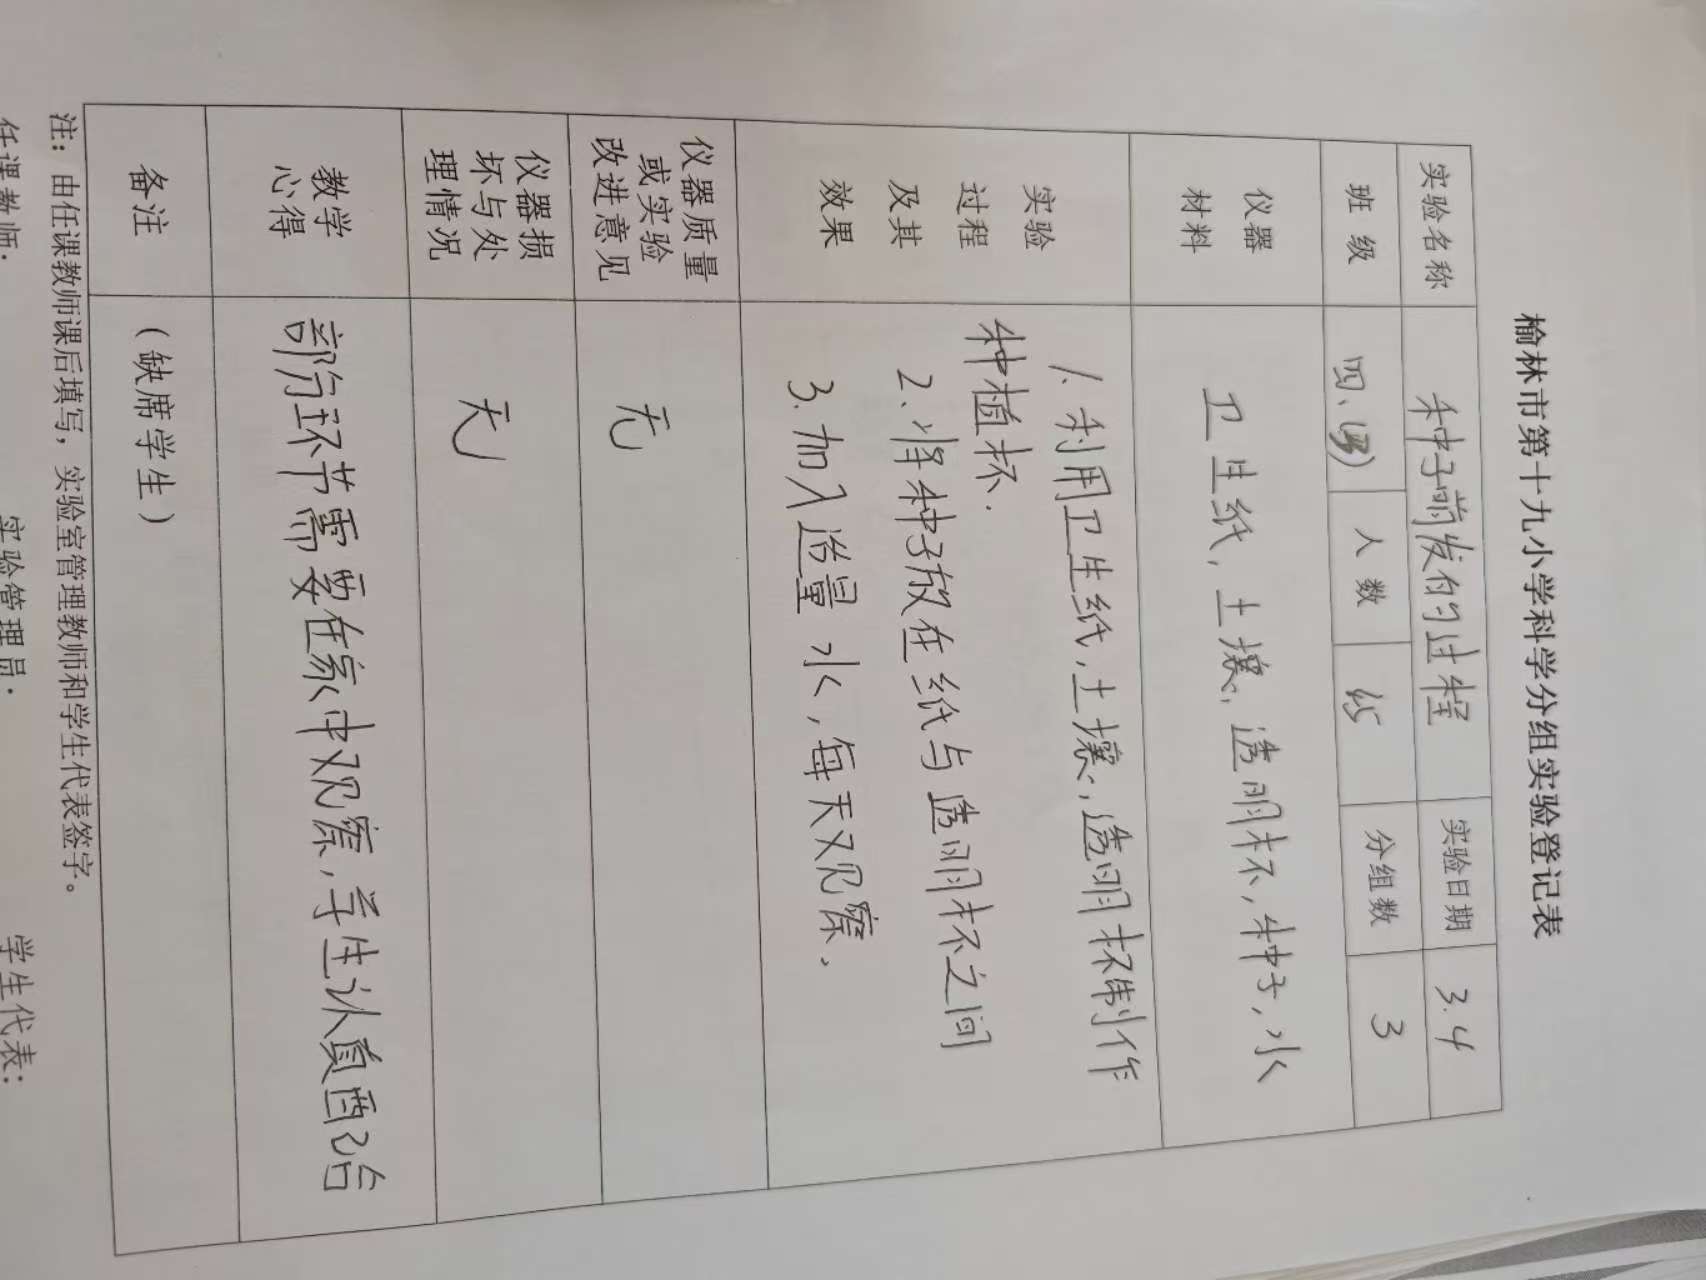 榆林市第十九小学科学分组实验登记表
实验名称 种子萌发的过程 实验日期 3.4
班级 四、 人数 分组数 3
仪器材料 卫生纸，土壤，透明杯，种子，水
实验过程及其效果 1、利用卫生纸，土壤，透明杯制作
种植杯.
2、将种子放在纸与透明杯之间
3.加入适量水，每天观察.
仪器质量或实验改进意见 无
仪器损坏与处理情况 无
教学心得 部分环节需要在家中观察，学生认真配合
备注 （缺席学生）
注：由任课教师课后填写，实验室管理教师和学生代表签字。
任课教师： 实验管理员： 学生代表：